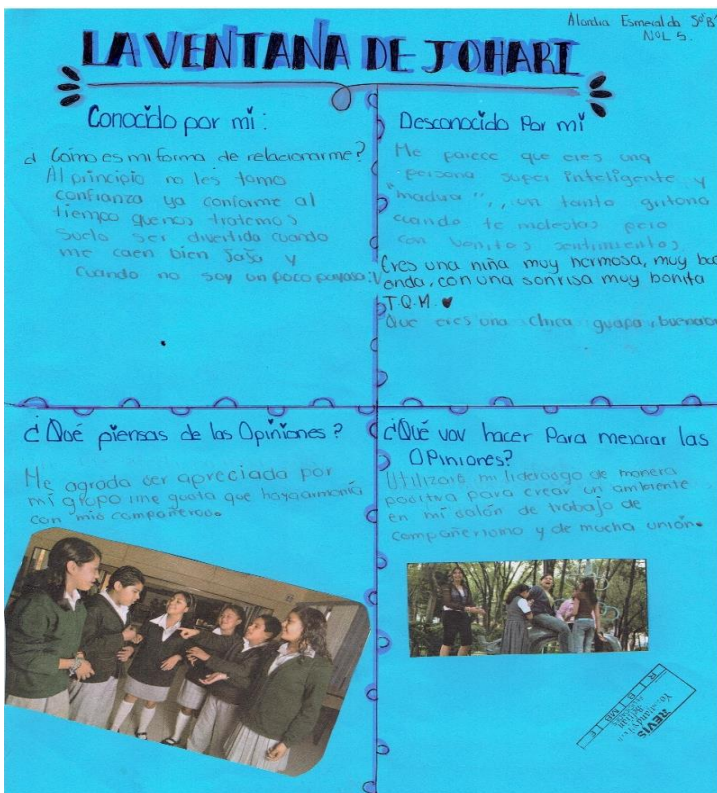 Alondra Esmeralda 5º"B"
NºL 5.
LA VENTANA DE JOHARI
Conocido por mi:
¿ Cómo es mi forma de relacionarme?
Al principio no les tomo
confianza ya conforme al
tiempo que nos tratemos
suelo ser divertida cuando
me caen bien JaJa y
cuando no soy un poco payasa:V
Desconocido Por mi
Me parece que eres una
persona super inteligente y
"madura",, un tanto gritona
cuando te molestas pero
con bonitos sentimientos
Eres una niña muy hermosa, muy bue
onda, con una sonrisa muy bonita
T.Q.M. ♥
Que eres una chica guapa, buena
¿Qué piensas de las Opiniones?
Me agrada ser apreciada por
mi grupo me gusta que haya armonia
con mis compañeros.
¿Qué voy hacer Para mejorar las
OPiniones?
Utilizaré mi liderazgo de manera
positiva para crear un ambiente
en mi salón de trabajo de
compañerismo y de mucha unión.
REVIS